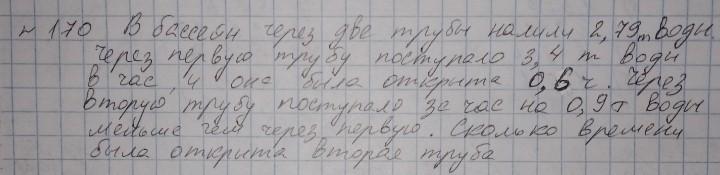 № 170 В бассейн через две трубы налили 2,79т воды.
Через первую трубу поступало 3,4 т воды
в час, и она была открыта 0,6 ч. Через
вторую трубу поступало за час на 0,9т воды
меньше чем через первую. Сколько времени
была открыта вторая труба